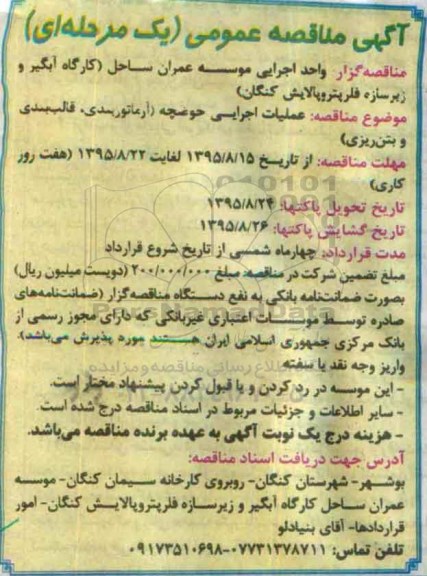 آگهی مناقصه عمومی (یک مرحله‌ای)
مناقصه‌گزار: واحد اجرایی موسسه عمران ساحل (کارگاه آبگیر و
زیرسازه فلرپتروپالایش کنگان)
موضوع مناقصه: عملیات اجرایی حوضچه (آرماتوربندی، قالب‌بندی
و بتن‌ریزی)
مهلت مناقصه: از تاریخ ۱۳۹۵/۸/۱۵ لغایت ۱۳۹۵/۸/۲۲ (هفت روز
کاری)
تاریخ تحویل پاکتها: ۱۳۹۵/۸/۲۴
تاریخ گشایش پاکتها: ۱۳۹۵/۸/۲۶
مدت قرارداد: چهارماه شمسی از تاریخ شروع قرارداد
مبلغ تضمین شرکت در مناقصه: مبلغ ۲۰۰/۰۰۰/۰۰۰ (دویست میلیون ریال)
بصورت ضمانت‌نامه بانکی به نفع دستگاه مناقصه‌گزار (ضمانت‌نامه‌های
صادره توسط موسسات اعتباری غیربانکی که دارای مجوز رسمی از
بانک مرکزی جمهوری اسلامی ایران هستند مورد پذیرش می‌باشد).
واریز وجه نقد یا سفته
- این موسسه در رد کردن و یا قبول کردن پیشنهاد مختار است.
- سایر اطلاعات و جزئیات مربوط در اسناد مناقصه درج شده است.
- هزینه درج یک نوبت آگهی به عهده برنده مناقصه می‌باشد.
آدرس جهت دریافت اسناد مناقصه:
بوشهر- شهرستان کنگان- روبروی کارخانه سیمان کنگان- موسسه
عمران ساحل کارگاه آبگیر و زیرسازه فلرپتروپالایش کنگان- امور
قراردادها- آقای بنیادلو
تلفن تماس: ۰۷۷۳۱۳۷۸۷۱۱-۰۹۱۷۳۵۱۰۶۹۸